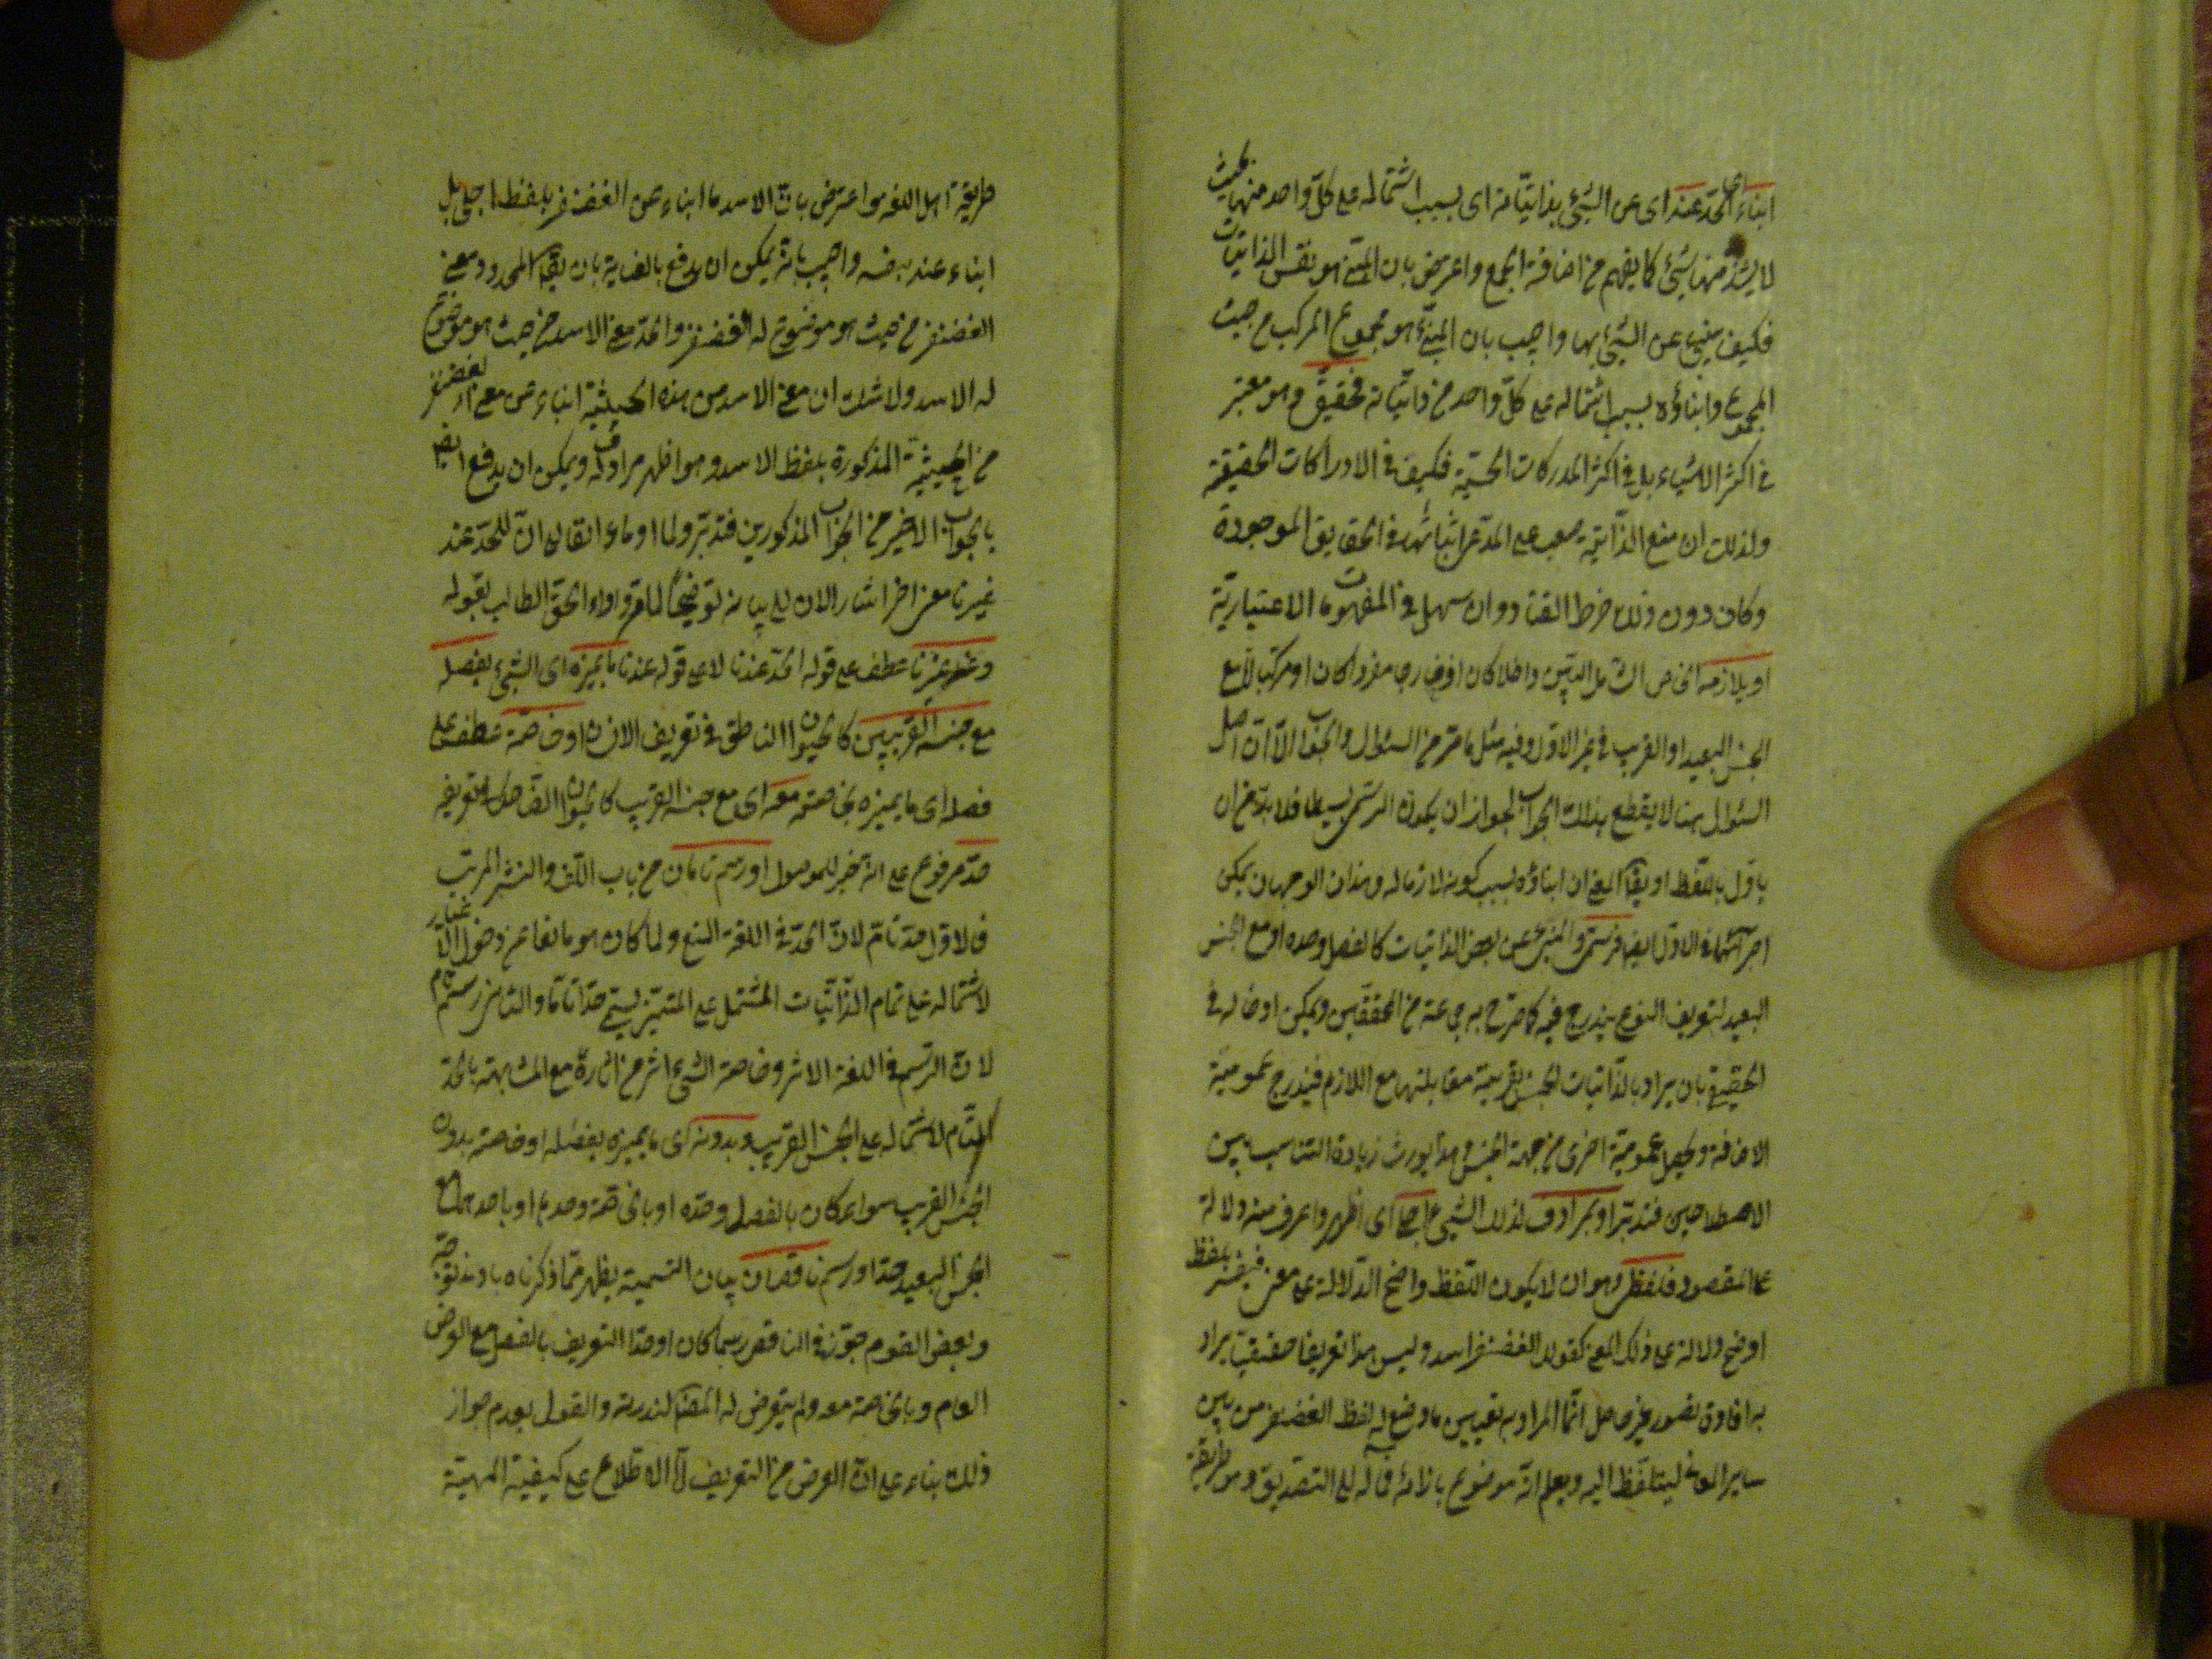 ابناء الحد عنه اى عن الشئ بذاتياته اى بسبب اشتماله على كل واحد منها بحيث
لا يشذ منها شئ كما يفهم من اضافة الجمع واعترض بان المنبئ هو نفس الذاتيات
فكيف ينبئ عن الشئ بها واجيب بان المنبئ هو مجموع المركب من حيث
المجموع وابناؤه بسبب اشتماله على كل واحد من ذاتياته فحقيقى وهو معتبر
فى اكثر الاشياء بل فى اكثر المدركات الحسية فكيف فى الادراكات الحقيقية
ولذلك ان منع الذاتية يصعب على المدعى اثباتها فى الحقايق الموجودة
وكان دون ذلك خرط القتاد وان سهل فى المفهومات الاعتبارية
او بلازمه الخاص الشامل البين داخلا كان او خارجا مفردا كان او مركبا مع
الجنس البعيد او القريب فى غير الاول وفيه مثل ما مر من السئوال والجواب الا ان اصل
السئوال هنا لا ينقطع بذلك الجواب لجواز ان يكون الرسم بسيطا فلا بد من ان
يأول باللفظ او يقال المنع ان ابناؤه بسبب كونه لازما له وهذان الوجهان يمكن
اجرائهما فى الاول ايضا فرسمى والمنبئ عن بعض الذاتيات كالفصل وحده او مع الجنس
البعيد لتعريف النوع يندرج فيه كما صرح به جماعة من المحققين ويمكن ادخاله فى
الحقيقى بان يراد بالذاتيات الجنس بقرينة مقابلتها مع اللازم فيندرج عمومية
الاضافة ويحصل عمومية اخرى من جهة الجنس وهذا يورث زيادة التناسب بين
الاصطلاحين فتدبر او بمرادف لذلك الشئ اجلى اى اظهر واعرف منه دلالة
على المقصود فلفظى وهو ان لا يكون اللفظ واضح الدلالة على معنى فيفسر بلفظ
اوضح دلالة على ذلك المعنى كقولك الغضنفر اسد وليس هذا تعريفا حقيقيا يراد
به افادة تصور غير حاصل انما المراد به تعيين ما وضع له لفظ الغضنفر من بين
ساير المعانى ليتلفظ اليه ويعلم انه موضوع بازائه فماله الى التصديق وهو طريقة
طريقة اهل اللغة واعترض بان الاسد ما ابناء عن الغضنفر بلفظ اجلى بل
ابناء عنه بنفسه واجيب بانه يمكن ان يدفع بالعناية بان يقال المحدود معنى
الغضنفر من حيث هو موضوع له الغضنفر والحد معنى الاسد من حيث هو موضوع
له الاسد ولا شك ان معنى الاسد من هذه الحيثية ابناء عن معنى الغضنفر
من الحيثية المذكورة بلفظ الاسد وهو اظهر مرادفه ويمكن ان يدفع ايضا
بالجواب الاخير من الجواب المذكورين فتدبر ولما اوماء انفا له ان للحد عند
غيرنا معنى اخر اشار الان الى بيانه توضيحا لما مر واداء لحق الطالب بقوله
وعند غيرنا عطف على قوله الحد عندنا لا على قوله عندنا ما يميزه اى الشئ بفصله
مع جنسه القريبين كالحيوان الناطق فى تعريف الانسان او خاصة عطف على
فصله اى ما يميزه بخاصته معه اى مع جنسه القريب كالحيوان الضاحك لتعريفه
حد مرفوع على انه خبر للموصول او رسم تامان من باب اللف والنشر المرتب
فالاول حد تام لان الحد فى اللغة المنع ولما كان هو مانعا عن دخول الاغيار
لاشتماله على تمام الذاتيات المشتمل على المتميز يسمى حدا تاما والثانى رسم تام
لان الرسم فى اللغة الاثر وخاصة الشئ اثر من اثاره مع المشابهة بالحد
التام لاشتماله على الجنس القريب وبدونه اى ما يميزه بفصله او خاصة بدون
الجنس القريب سواء كان بالفصل وحده او بالخاصة وحدها او باحدهما مع
الجنس البعيد حد او رسم ناقصان بيان التسمية يظهر مما ذكرناه بادنى توجه
وبعض القوم جوز فى الناقص رسما كان او حدا التعريف بالفصل مع العرض
العام وبالخاصة معه ولم يتعرض له المصنف لندرته والقول بعدم جواز
ذلك بناء على ان الغرض من التعريف اما الاطلاع على كيفية المهية